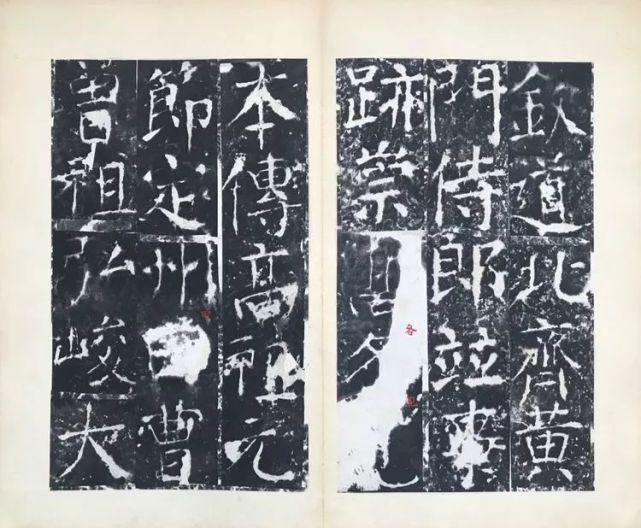 欽道北齊黄
門侍郎並事
跡崇高各見
本傳高祖元
節定州田曹
曾祖弘峻大